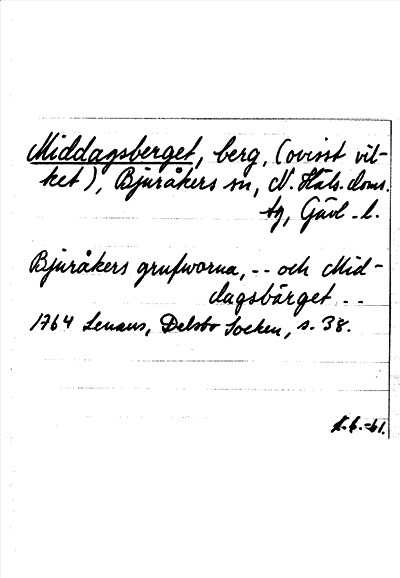 Middagsberget, berg, (ovisst vil-
ket), Bjuråkers sn, N. Häls. doms.
tg, Gävl. l.
Bjuråkers grufworna, -- och Mid-
dagsbärget --
1764 Lenæus, Delsbo Socken, s. 38.